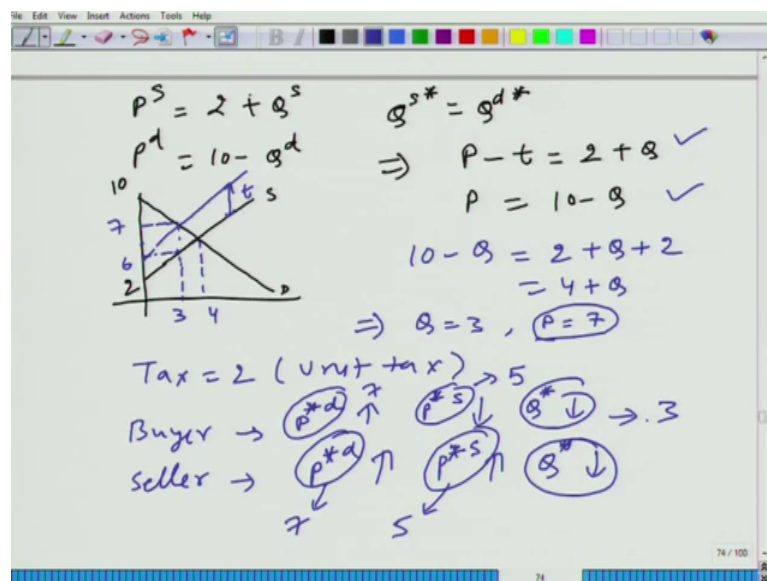 File Edit View Insert Actions Tools Help
P^s = 2 + Q^s
P^d = 10 - Q^d
Q^s* = Q^d*
⇒ P - t = 2 + Q ✓
P = 10 - Q ✓
10
7
6
2
t
S
D
3 4
10 - Q = 2 + Q + 2
= 4 + Q
⇒ Q = 3 , P = 7
Tax = 2 (Unit tax)
Buyer → P*^d ↑ 7 P*^s ↓ → 5 Q* ↓ → 3
Seller → P*^d ↑ P*^s ↑ Q* ↓
7 5
74 / 100
74